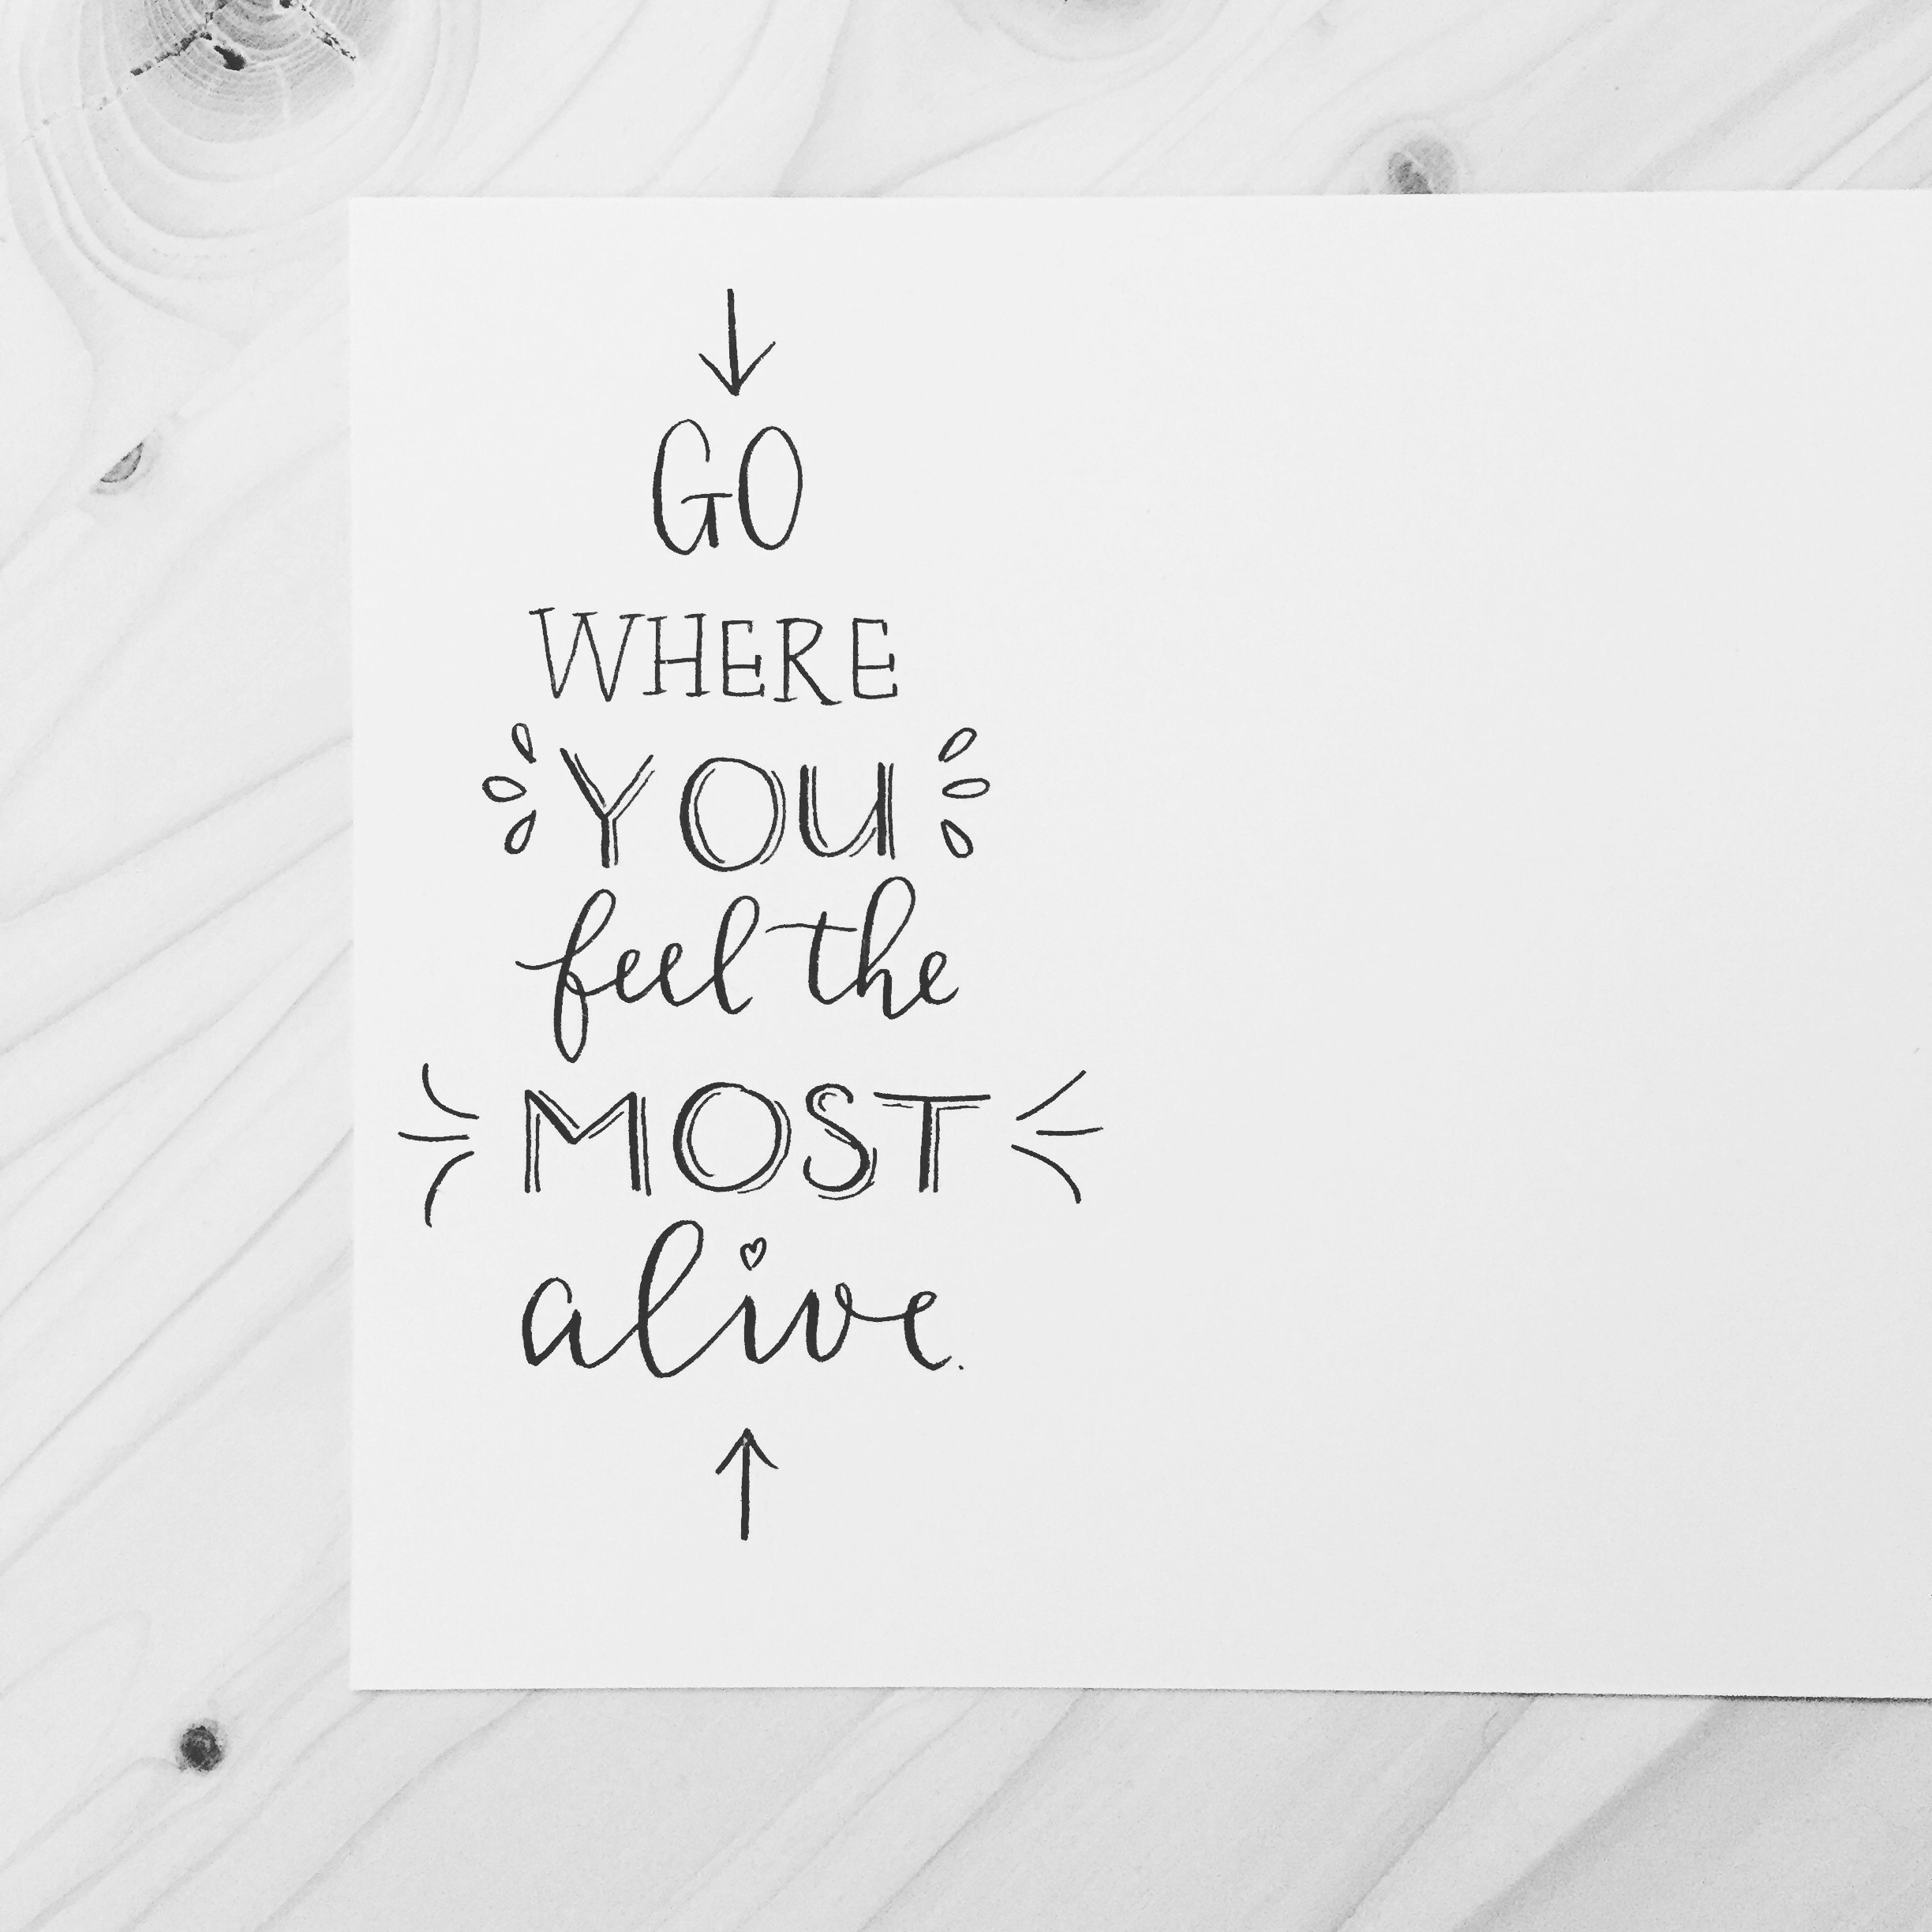 GO
WHERE
YOU
feel the
MOST
alive.